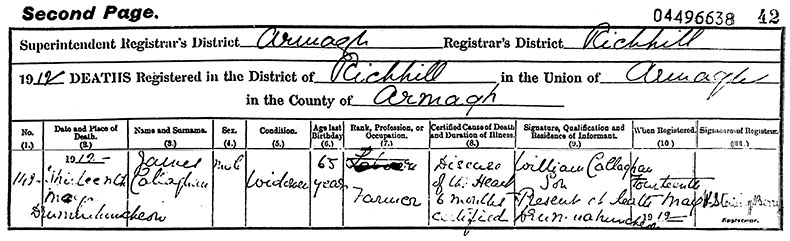 Second Page. 04496638 42
Superintendent Registrar's District Armagh Registrar's District Richhill
1912 DEATHS Registered in the District of Richhill in the Union of Armagh
in the County of Armagh
No. (1.) Date and Place of Death. (2.) Name and Surname. (3.) Sex. (4.) Condition. (5.) Age last Birthday (6.) Rank, Profession, or Occupation. (7.) Certified Cause of Death and Duration of Illness. (8.) Signature, Qualification and Residence of Informant. (9.) When Registered. (10.) Signature of Registrar.
1912 James Male 65 Disease William Callaghan
149 Thirteenth Callaghan Widower years of the Heart Son Fourteenth
May Farmer 6 months Present at death May
certified 1912
Registrar.